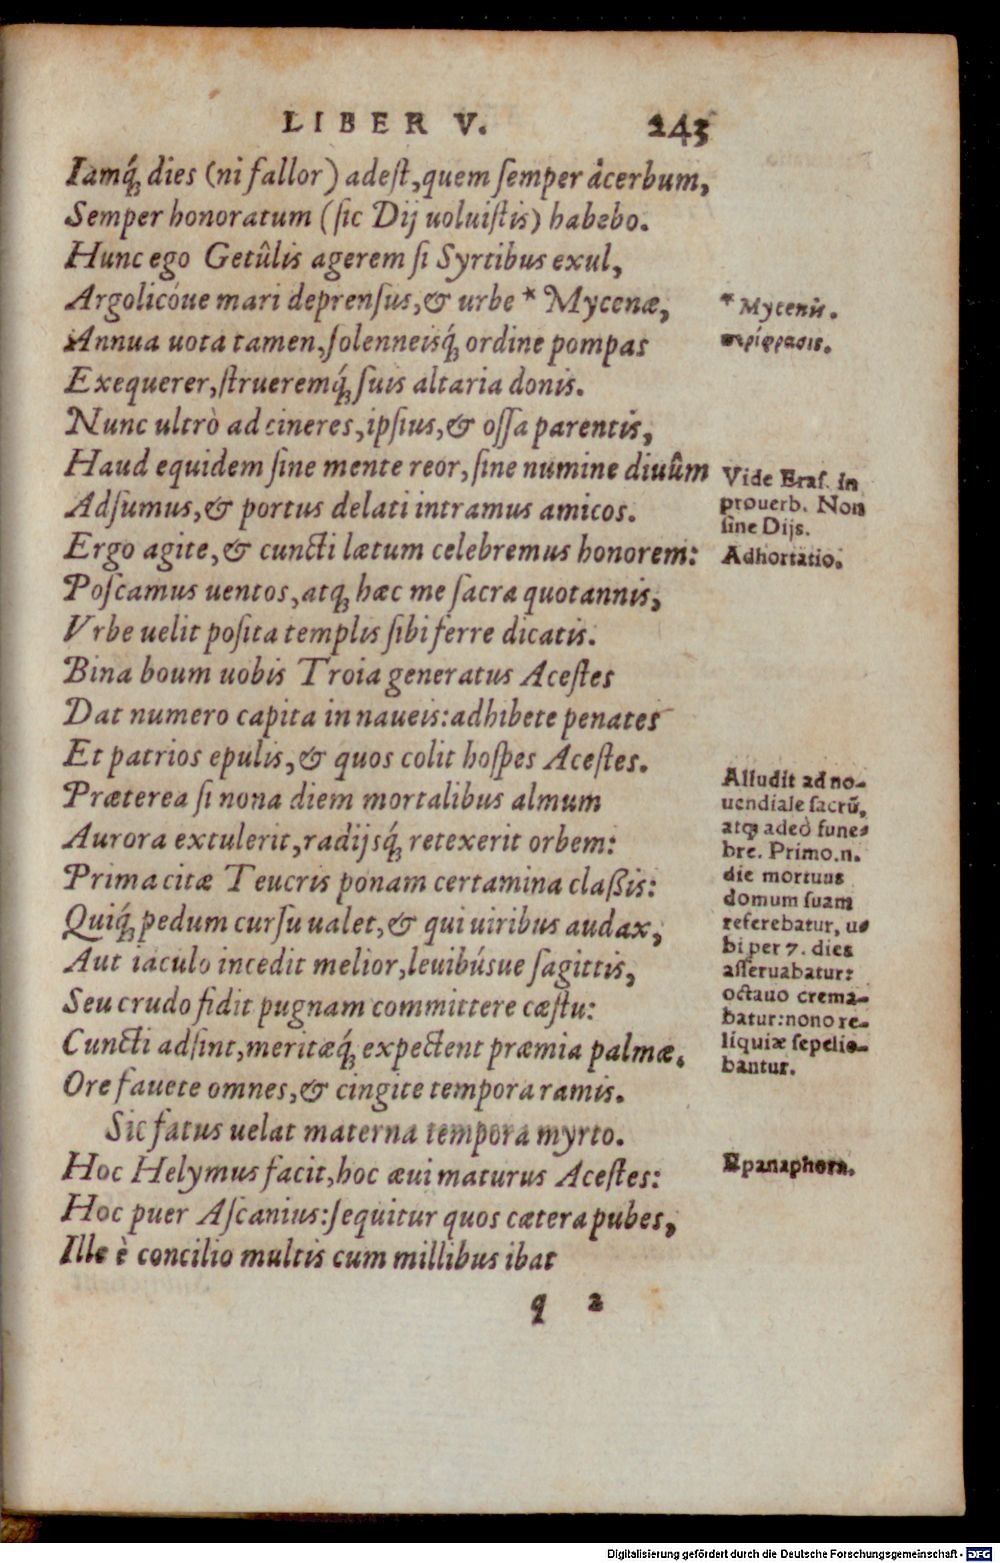 LIBER V. 243
Iamq́; dies (ni fallor) adeſt, quem ſemper ácerbum,
Semper honoratum (ſic Dij uoluiſtis) habebo.
Hunc ego Getûlis agerem ſi Syrtibus exul,
Argolicóue mari deprenſus, & urbe * Mycenæ,
Annua uota tamen, ſolenneisq́; ordine pompas
Exequerer, ſtrueremq́; ſuis altaria donis.
Nunc ultrò ad cineres, ipſius, & oſſa parentis,
Haud equidem ſine mente reor, ſine numine diuûm
Adſumus, & portus delati intramus amicos.
Ergo agite, & cuncti lætum celebremus honorem:
Poſcamus uentos, atq; hæc me ſacra quotannis,
Vrbe uelit poſita templis ſibi ferre dicatis.
Bina boum uobis Troia generatus Aceſtes
Dat numero capita in naueis: adhibete penates
Et patrios epulis, & quos colit hoſpes Aceſtes.
Præterea ſi nona diem mortalibus almum
Aurora extulerit, radijsq́; retexerit orbem:
Prima citæ Teucris ponam certamina claßis:
Quiq́; pedum curſu ualet, & qui uiribus audax,
Aut iaculo incedit melior, leuibúsue ſagittis,
Seu crudo fidit pugnam committere cæſtu:
Cuncti adſint, meritæq́; expectent præmia palmæ.
Ore fauete omnes, & cingite tempora ramis.
Sic fatus uelat materna tempora myrto.
Hoc Helymus facit, hoc æui maturus Aceſtes:
Hoc puer Aſcanius: ſequitur quos cætera pubes,
Ille è concilio multis cum millibus ibat
q 2
* Mycenis.
περίφρασις.
Vide Eraſ. in
prouerb. Non
ſine Dijs.
Adhortatio.
Alludit ad no-
uendiale ſacrũ,
atq; adeò fune-
bre. Primo.n.
die mortuus
domum ſuam
referebatur, u-
bi per 7. dies
aſſeruabatur:
octauo crema-
batur: nono re-
liquiæ ſepelie-
bantur.
Epanaphora.
Digitalisierung gefördert durch die Deutsche Forschungsgemeinschaft - DFG